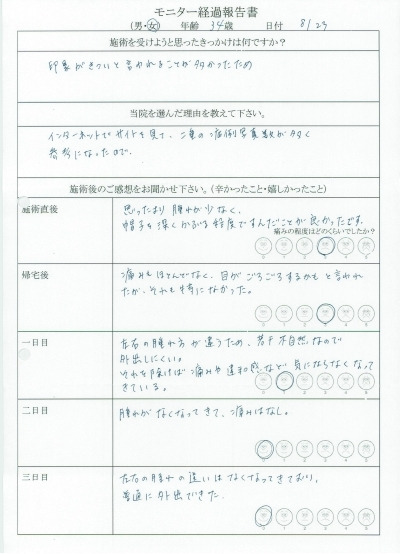 モニター経過報告書
(男・女) 年齢 34歳 日付 8/23
施術を受けようと思ったきっかけは何ですか?
印象がきついと言われることが多かったため
当院を選んだ理由を教えて下さい。
インターネットでサイトを見て、二重の症例写真数が多く
参考になったので。
施術後のご感想をお聞かせ下さい。(辛かったこと・嬉しかったこと)
施術直後
思ったより腫れが少なく、
帽子を深くかぶる程度ですんだことが良かったです。
痛みの程度はどのくらいでしたか?
0 1 2 3 4 5
帰宅後
痛みもほとんどなく、目がごろごろするかもと言われ
たが、それも特になかった。
0 1 2 3 4 5
一日目
左右の腫れ方が違うため、若干不自然なので
外出しにくい。
それを除けば痛みや違和感など気にならなくなって
きている。
0 1 2 3 4 5
二日目
腫れがなくなってきて、痛みはなし。
0 1 2 3 4 5
三日目
左右の腫れの違いはなくなってきており、
普通に外出できた。
0 1 2 3 4 5